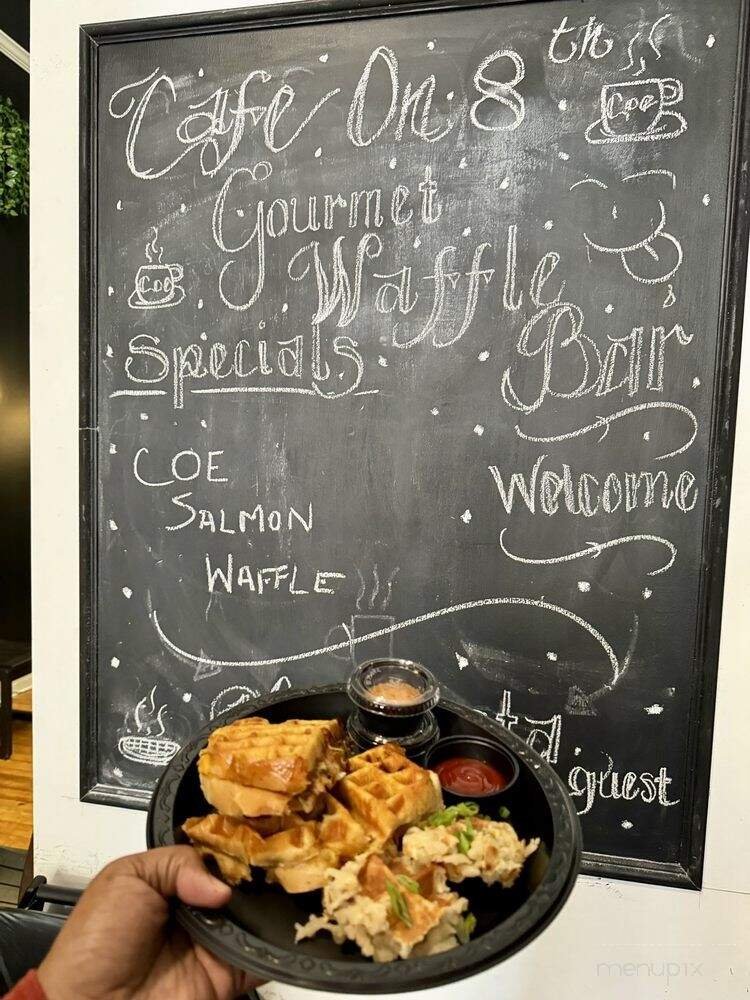 Cafe On 8th
Coe
Gourmet
Waffle
Bar
Coe
Specials
COE
SALMON
WAFFLE
Welcome
guest
menupix